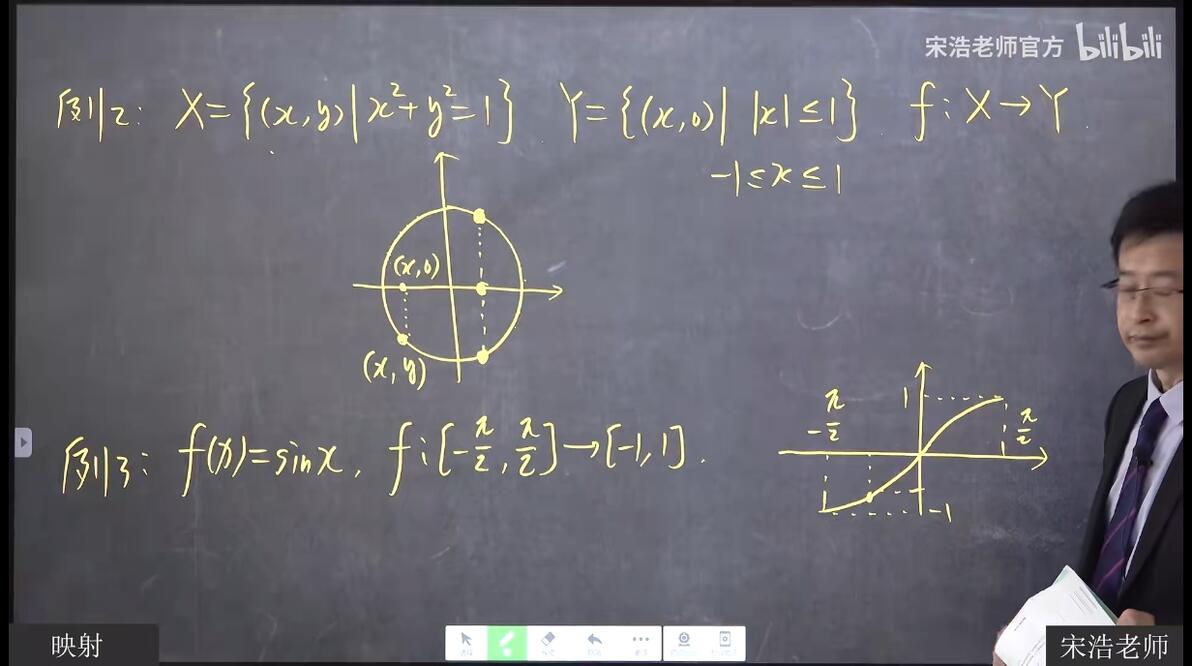 宋浩老师官方 bilibili
例2: X={(x,y)|x²+y²=1} Y={(x,0)| |x|≤1} f:X→Y
-1≤x≤1
(x,0)
(x,y)
1
-π/2
π/2
例3: f(x)=sinx, f:[-π/2,π/2]→[-1,1].
-1
映射
宋浩老师